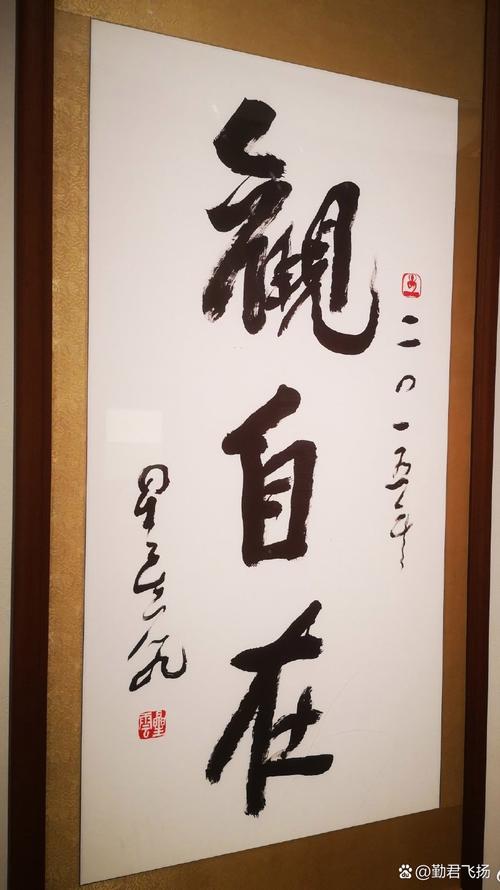 二〇一五年
觀自在
星雲
星雲
@勤君飞扬